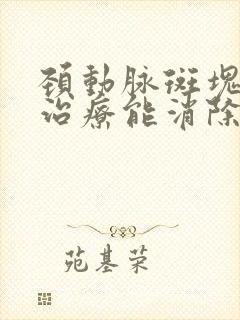 頚動脉斑塊
治療能消除
苑基荣